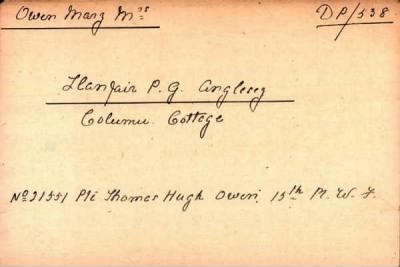 Owen Mary Mrs DP/538
Llanfair P. G. Anglesey
Column Cottage
No 21551 Pte Thomas Hugh Owen, 15th R. W. F.